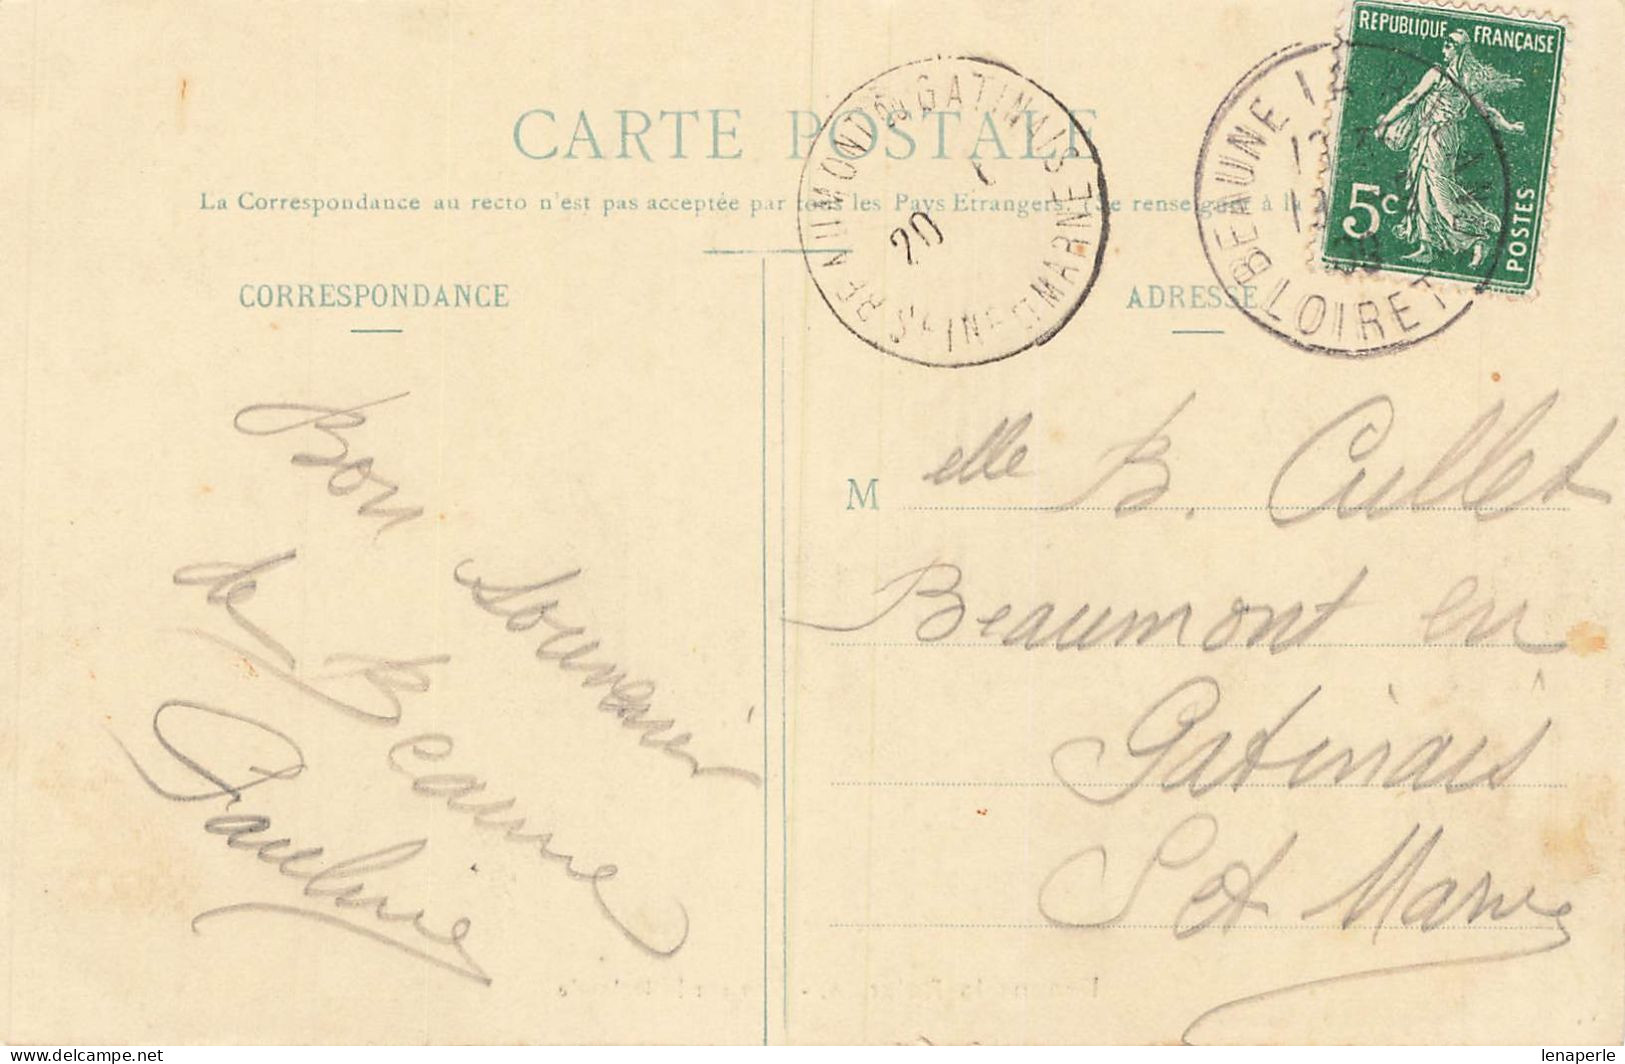 REPUBLIQUE FRANÇAISE
5c
POSTES
BEAUNE LOIRET
BEAUMONT DU GATINAIS
SEINE ET MARNE
20
CARTE POSTALE
La Correspondance au recto n'est pas acceptée par tous les Pays Etrangers. Se renseigner à la
CORRESPONDANCE
Bon souvenir
de Beaune
Pauline
ADRESSE
M elle B. Cullet
Beaumont en
Gatinais
S et Marne
lenaperle